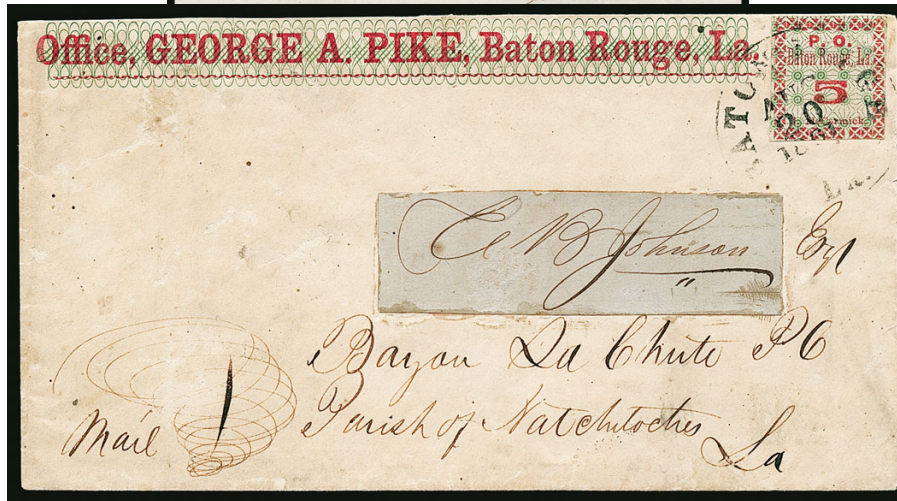 Office, GEORGE A. PIKE, Baton Rouge, La.
P. O.
Baton Rouge, La.
5
McCormick
BATON
AUG
20
1861
LA.
B Johnson Esqr
Bayou La Chute PO
Parish of Natchitoches
La
Mail